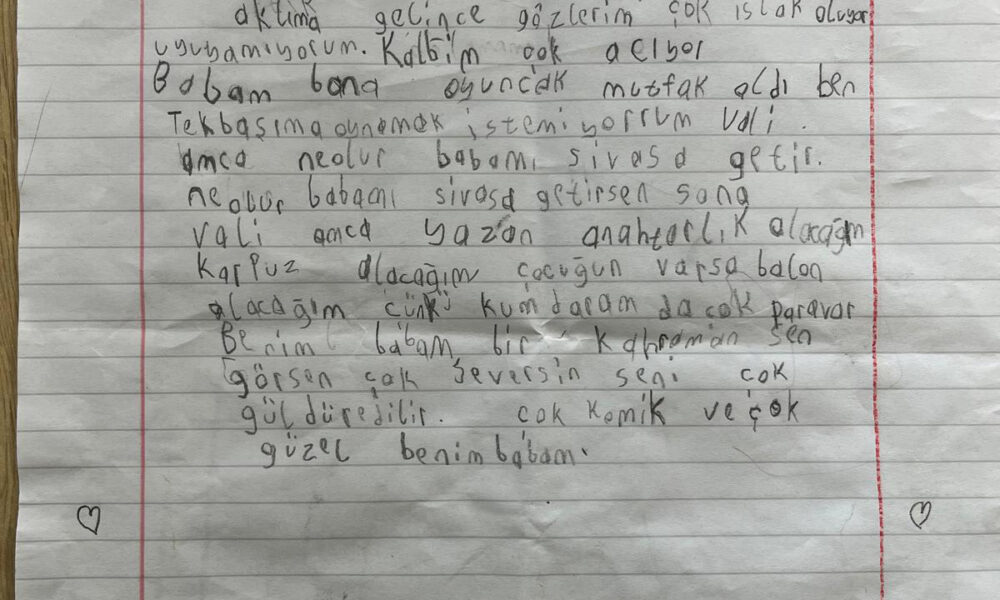 aklıma gelince gözlerim çok ıslak oluyor
uyuyamıyorum. Kalbim çok acıyor
Babam bana oyuncak mutfak aldı ben
Tekbaşıma oynamak istemiyorrum Vali.
amca neolur babamı sivasa getir.
neolur babamı sivasa getirsen sana
vali amca yazan anahtarlık alacağm
Karpuz alacağım çocuğun varsa balon
alacağım çünkü kumdaram da çok paravar
Benim babam bir kahraman sen
görsen çok seversin seni çok
güldüredilir. çok komik ve çok
güzel benim babam.